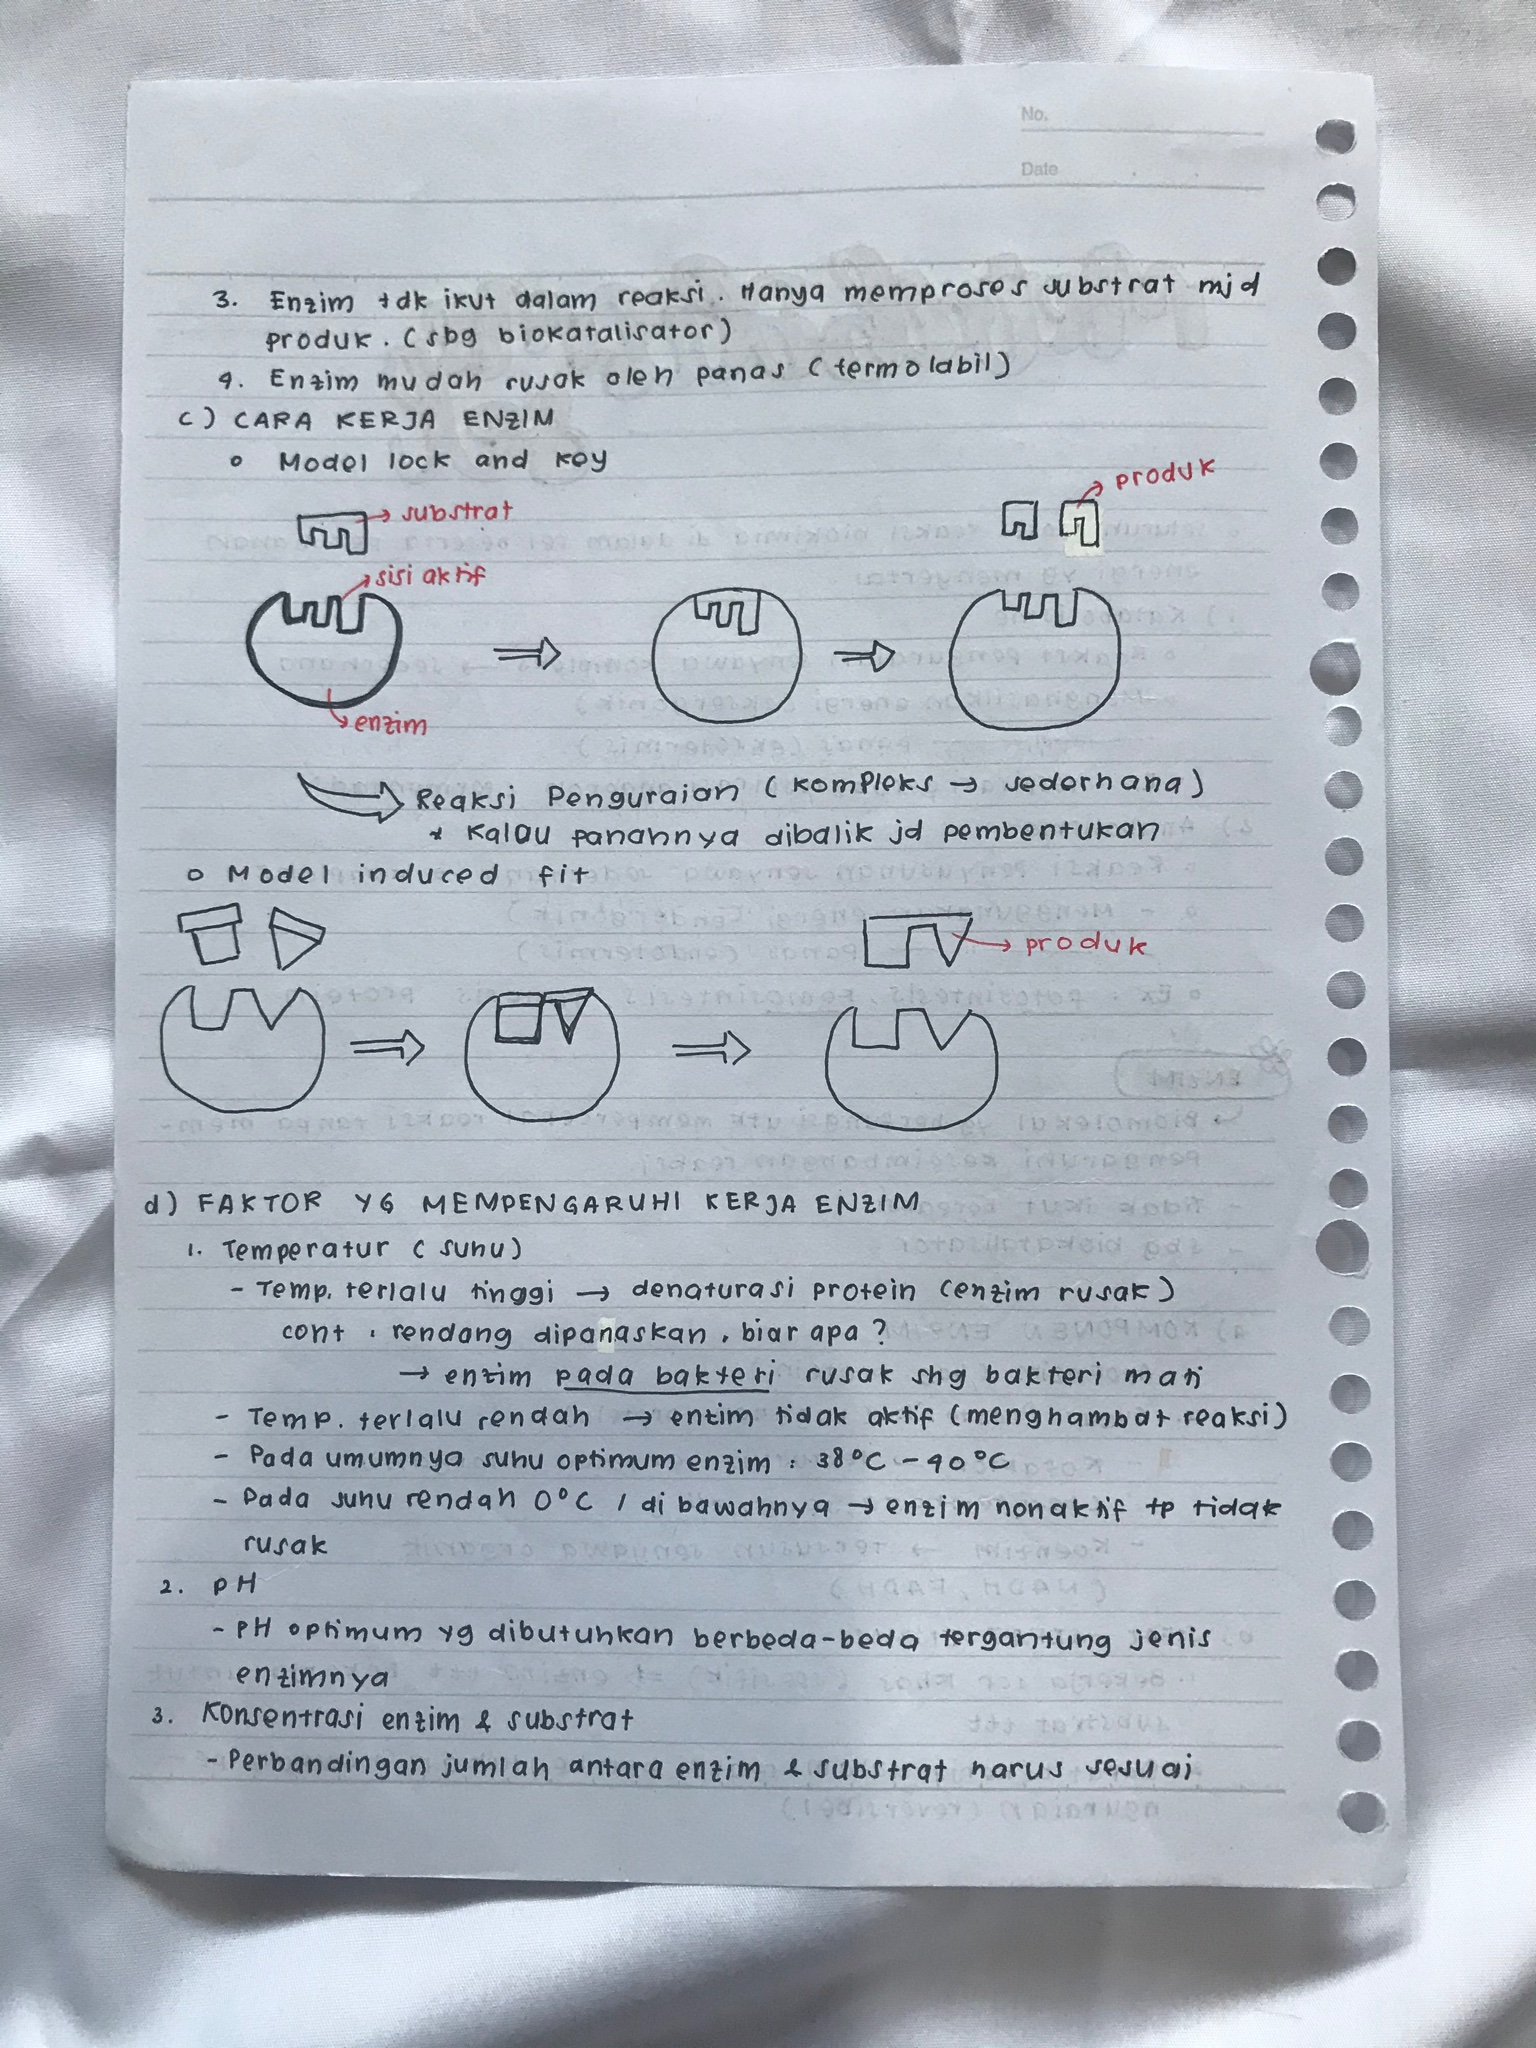 No.
Date
3. Enzim tdk ikut dalam reaksi. Hanya memproses substrat mjd
produk. (sbg biokatalisator)
4. Enzim mudah rusak oleh panas (termolabil)
c) CARA KERJA ENZIM
o Model lock and key
produk
substrat
sisi aktif
enzim
Reaksi Penguraian (kompleks → sederhana)
* Kalau panahnya dibalik jd pembentukan
o Model induced fit
produk
d) FAKTOR YG MEMPENGARUHI KERJA ENZIM
1. Temperatur (suhu)
- Temp. terlalu tinggi → denaturasi protein (enzim rusak)
cont : rendang dipanaskan, biar apa?
→ enzim pada bakteri rusak shg bakteri mati
- Temp. terlalu rendah → enzim tidak aktif (menghambat reaksi)
- Pada umumnya suhu optimum enzim : 38°C - 40°C
- Pada suhu rendah 0°C / di bawahnya → enzim nonaktif tp tidak
rusak
2. pH
- pH optimum yg dibutuhkan berbeda-beda tergantung jenis
enzimnya
3. Konsentrasi enzim & substrat
- Perbandingan jumlah antara enzim & substrat harus sesuai